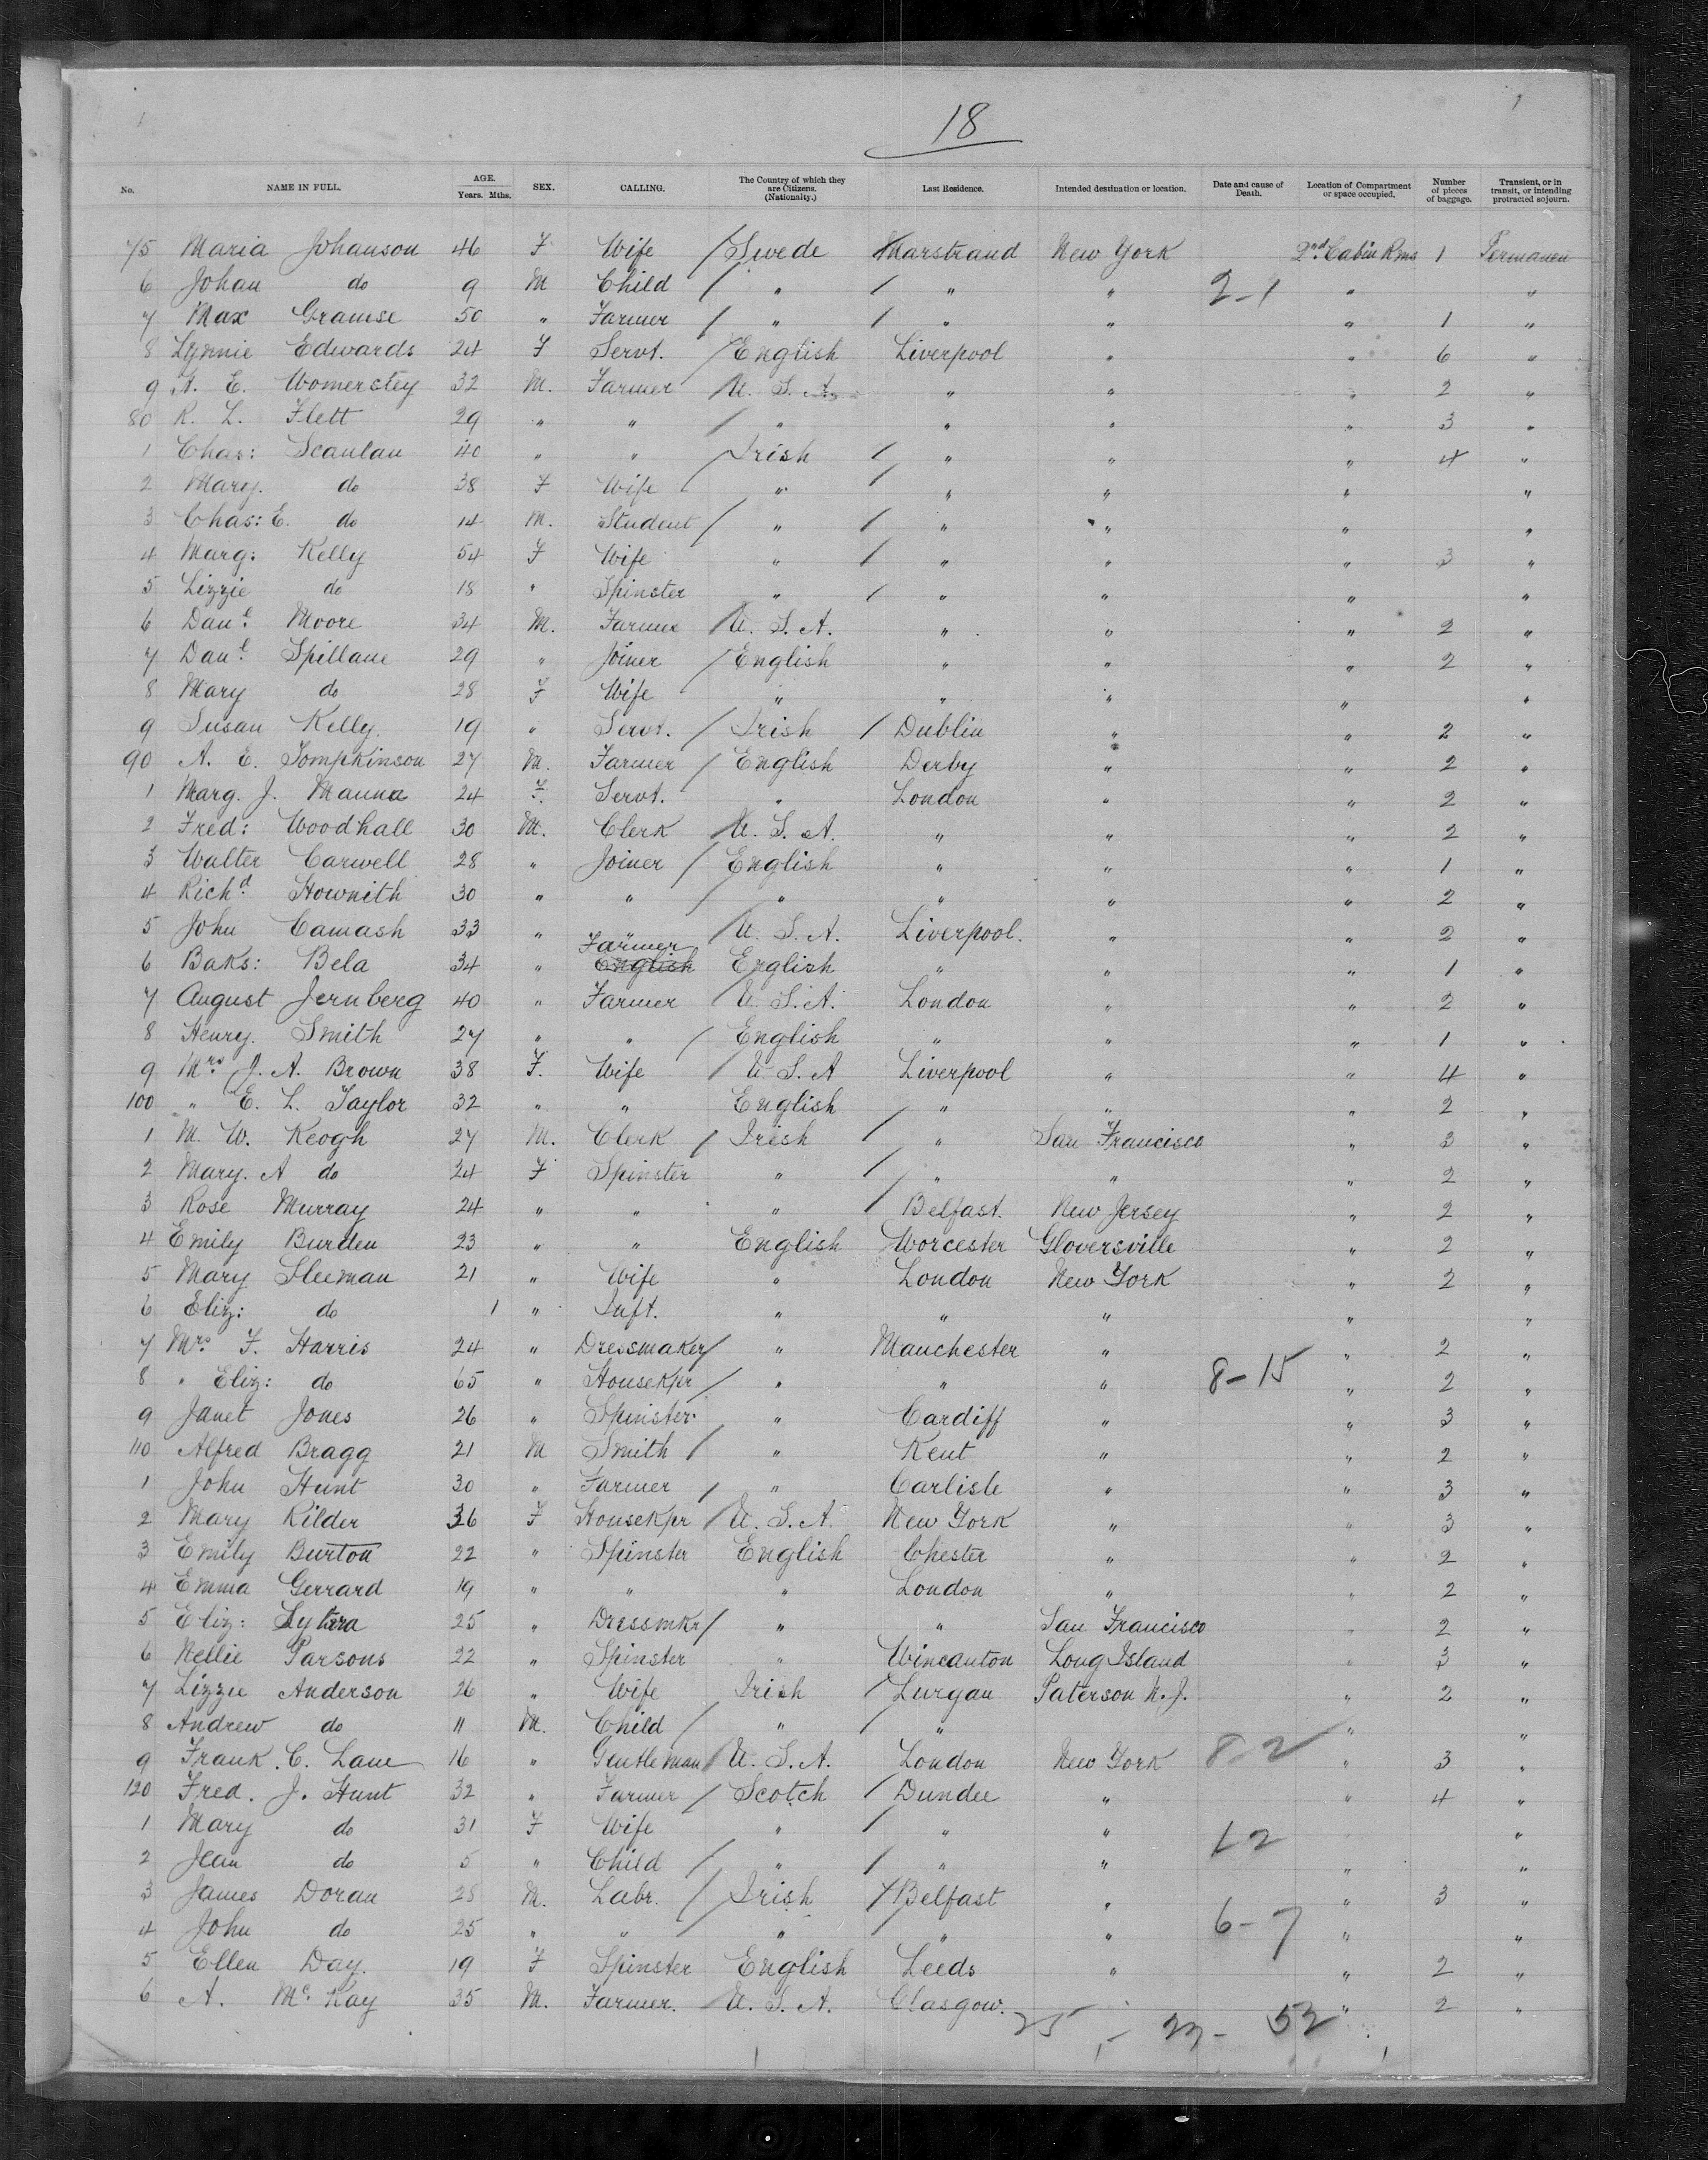 18
No. NAME IN FULL. AGE. Years. Mths. SEX. CALLING. The Country of which they are Citizens. (Nationalty.) Last Residence. Intended destination or location. Date and cause of Death. Location of Compartment or space occupied. Number of pieces of baggage. Transient, or in transit, or intending protracted sojourn.
75 Maria Johanson 46 F Wife / Swede Marstrand New York 2nd Cabin Rms 1 Permanen
6 Johan do 9 M Child / " / " " 2-1 " "
7 Max Gramse 50 " Farmer / " / " " " 1 "
8 Lynnie Edwards 24 F Servt. / English Liverpool " " 6 "
9 A. E. Womerstey 32 M. Farmer / U. S. A. " " " 2 "
80 R. L. Flett 29 " " / " " " " 3 "
1 Chas: Scanlan 40 " " / Irish / " " " 4 "
2 Mary. do 38 F Wife " / " " " "
3 Chas: E. do 14 M. Student / " / " " " "
4 Marg: Kelly 54 F Wife " / " " " 3 "
5 Lizzie do 18 " Spinster " / " " " "
6 Danl. Moore 34 M. Farmer / U. S. A. " " " 2 "
7 Danl. Spillane 29 " Joiner / English " " " 2 "
8 Mary do 28 F Wife " " " " "
9 Susan Kelly. 19 " Servt. / Irish / Dublin " " 2 "
90 A. E. Tompkinson 27 M. Farmer / English Derby " " 2 "
1 Marg. J. Manna 24 F. Servt. " London " " 2 "
2 Fred: Woodhall 30 M. Clerk / U. S. A. " " " 2 "
3 Walter Carwell 28 " Joiner / English " " " 1 "
4 Richd. Hownith 30 " " / " " " " 2 "
5 John Camash 33 " " / U. S. A. Liverpool. " " 2 "
6 Baks: Bela 34 " Farmer English English " " " 1 "
7 August Jernberg 40 " Farmer / U. S. A. London " " 2 "
8 Henry. Smith 27 " " / English " " " 1 "
9 Mrs. J. A. Brown 38 F. Wife / U. S. A Liverpool " " 4 "
100 " E. L. Taylor 32 " " English " " " 2 "
1 M. W. Keogh 27 M. Clerk / Irish / " San Francisco " 3 "
2 Mary. A do 24 F Spinster " / " " " 2 "
3 Rose Murray 24 " " " / Belfast. New Jersey " 2 "
4 Emily Burden 23 " " English Worcester Gloversville " 2 "
5 Mary Sleeman 21 " Wife " London New York " 2 "
6 Eliz: do 1 " Inft. " " " " "
7 Mrs. F. Harris 24 " Dressmaker / " Manchester " " 2 "
8 " Eliz: do 65 " Housekpr / " " " 8-15 " 2 "
9 Janet Jones 26 " Spinster " Cardiff " " 3 "
110 Alfred Bragg 21 M Smith / " Kent " " 2 "
1 John Hunt 30 " Farmer / " Carlisle " " 3 "
2 Mary Kilder 36 F Housekpr / U. S. A. New York " " 3 "
3 Emily Burton 22 " Spinster English Chester " " 2 "
4 Emma Gerrard 19 " " " London " " 2 "
5 Eliz: 25 " Dressmkr / " " San Francisco " 2 "
6 Nellie Parsons 22 " Spinster " Wincanton Long Island " 3 "
7 Lizzie Anderson 26 " Wife Irish / Lurgan Paterson N. J. " 2 "
8 Andrew do 11 M. Child / " / " " "
9 Frank. C. Lane 16 " Gentleman / U. S. A. London New York 8-2 " 3 "
120 Fred. J. Hunt 32 " Farmer / Scotch / Dundee " " 4 "
1 Mary do 31 F Wife " / " " 12 "
2 Jean do 5 " Child / " / " " " "
3 James Doran 28 M. Labr. / Irish / Belfast " " 3 "
4 John do 25 " " / " / " " 6-7 " "
5 Ellen Day. 19 F Spinster English Leeds " " 2 "
6 A. McKay 35 M. Farmer. / U. S. A. Glasgow. " " 2 "
25 - 27 - 52